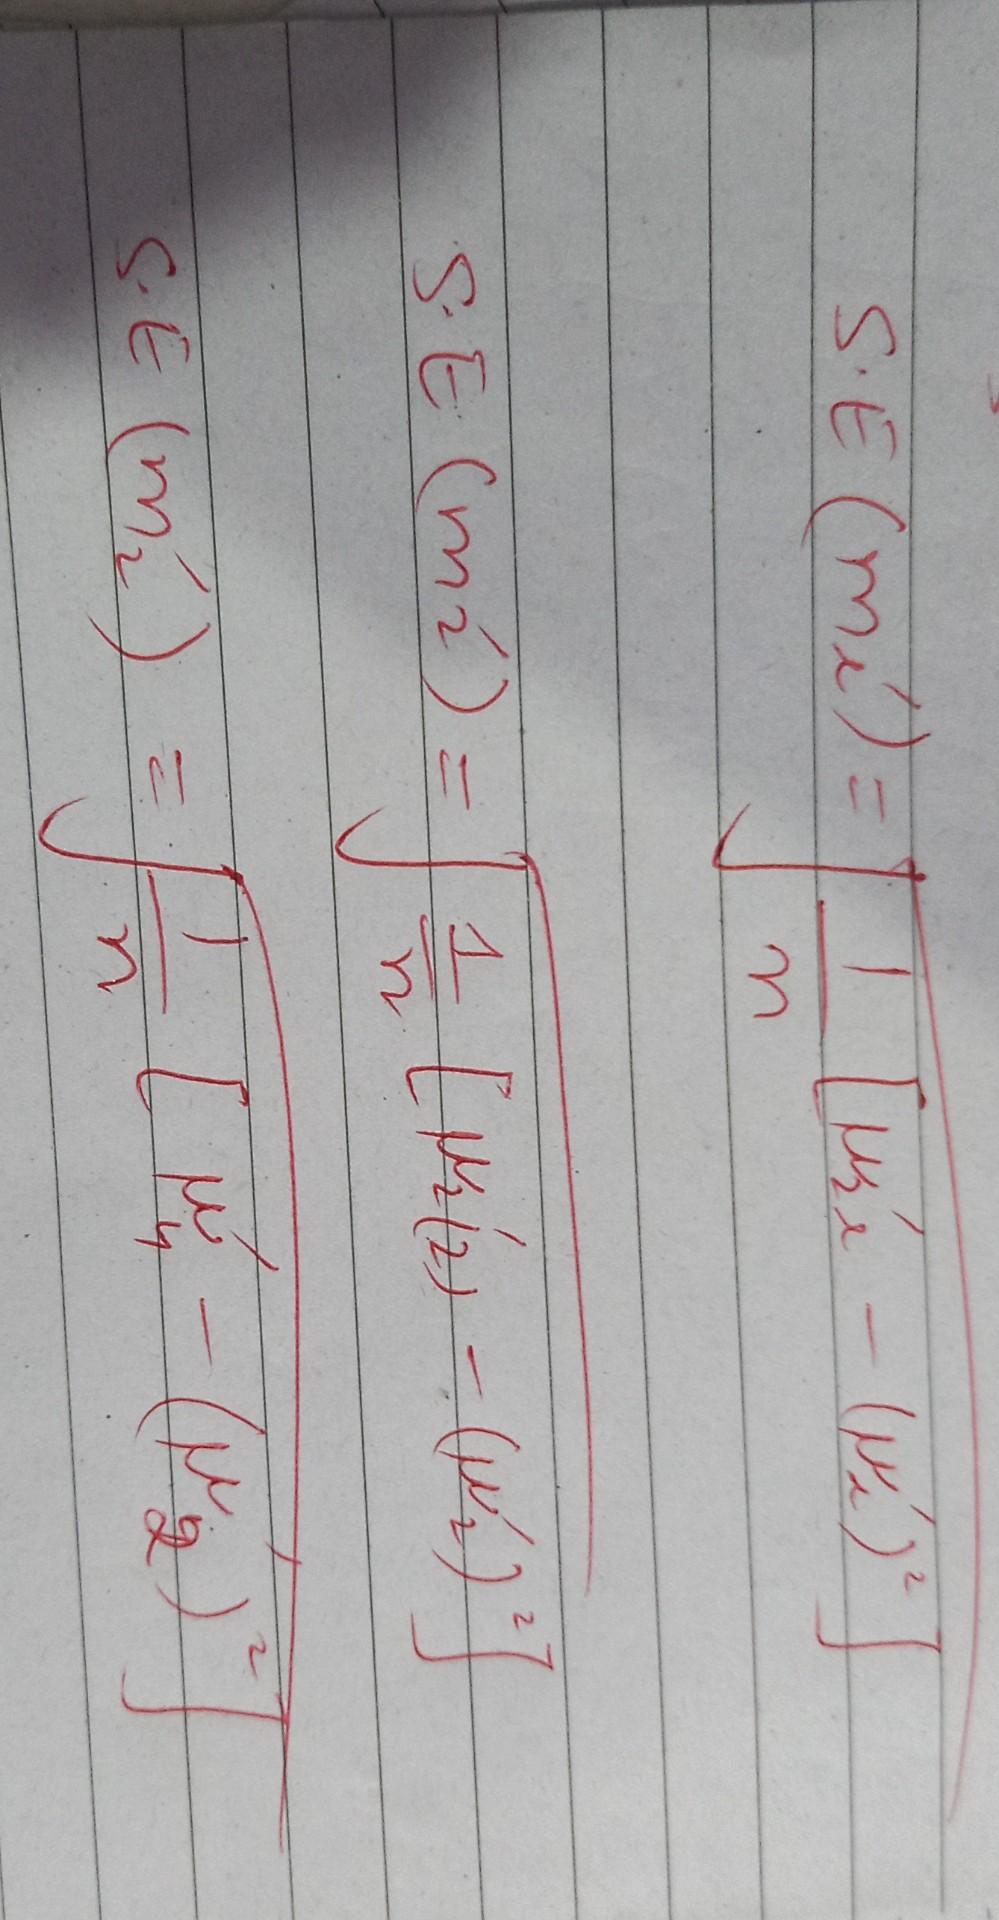 S.E (m_r') = √(1/n [μ_2r' - (μ_r')²])
S.E (m_2') = √(1/n [μ_2(2)' - (μ_2')²])
S.E (m_2') = √(1/n [μ_4' - (μ_2')²])